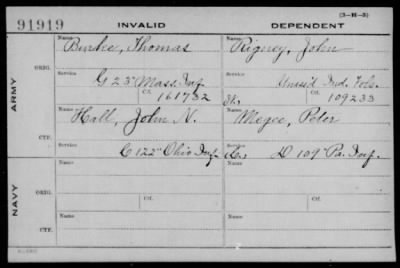 (3-H-5)
91919 INVALID DEPENDENT
Name Burke, Thomas Name Rigney, John
ORIG.
Service G 23" Mass Inf. Service Unass'd Ind. Vols.
Ctf. 161732 Ctf. 109233
ARMY
Name Hall, John N. Name Megee, Peter
CTF.
Service C 122" Ohio Inf. Service D 109" Pa. Inf.
Name Name
ORIG.
Service Service
Ctf. Ctf.
NAVY
Name Name
CTF.
Service Service